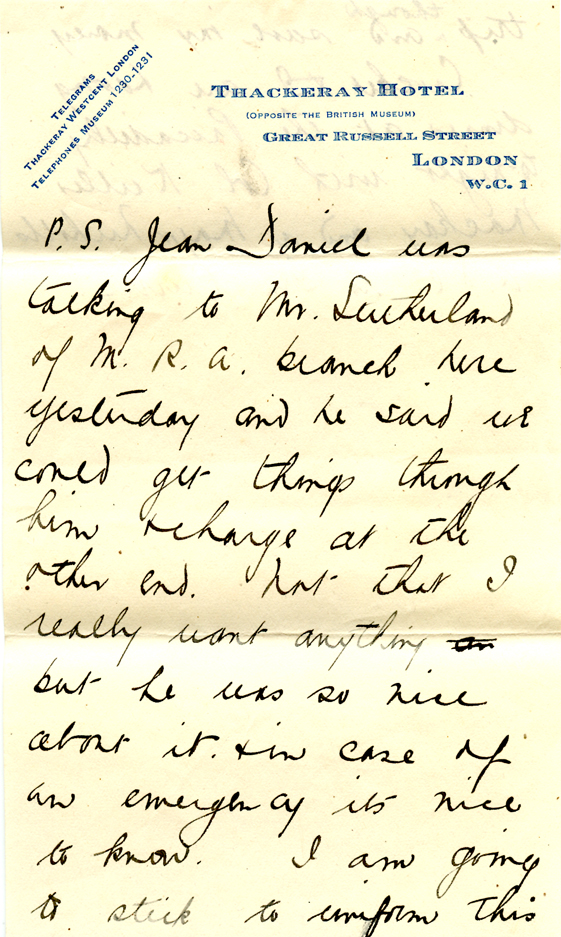 TELEGRAMS
THACKERAY WESTCENT LONDON
TELEPHONES MUSEUM 1230-1231
THACKERAY HOTEL
(OPPOSITE THE BRITISH MUSEUM)
GREAT RUSSELL STREET
LONDON
W.C. 1
P.S. Jean Daniel was
talking to Mr. Sutherland
of M. R. A. branch here
yesterday and he said we
could get things through
him & charge at the
other end. Not that I
really want anything an
but he was so nice
about it. & in case of
an emergency its nice
to know. I am going
to stick to uniform this